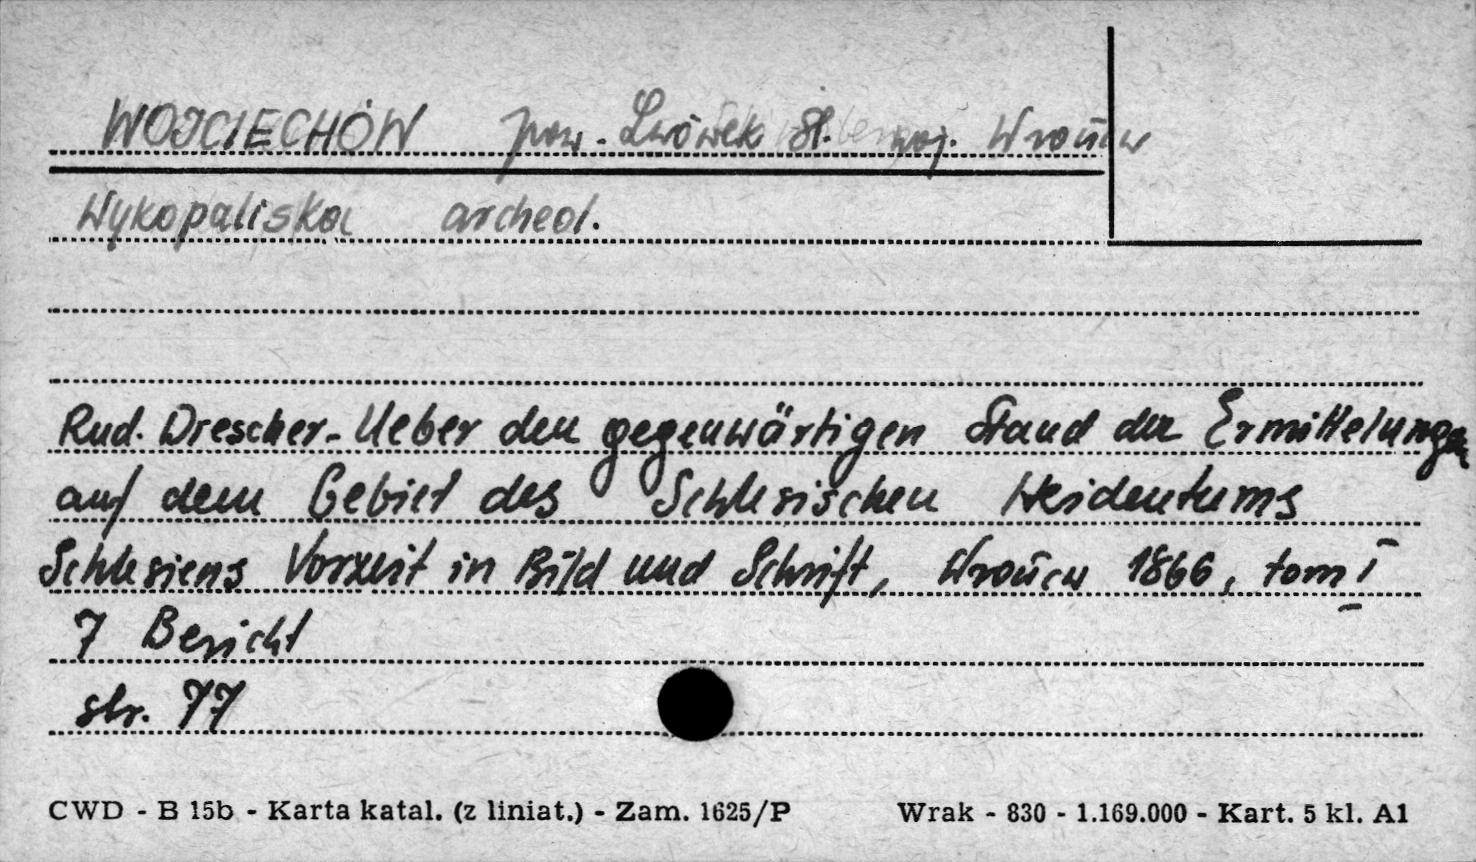 WOJCIECHÓW pow. Lwówek Śl. woj. Wrocław
Wykopaliska archeol.
Rud. Drescher - Ueber den gegenwärtigen Stand der Ermittelungen
auf dem Gebiet des Schlesischen Heidentums
Schlesiens Vorzeit in Bild und Schrift, Wrocław 1866, tom I
7 Bericht
str. 77
CWD - B 15b - Karta katal. (z liniat.) - Zam. 1625/P Wrak - 830 - 1.169.000 - Kart. 5 kl. A1